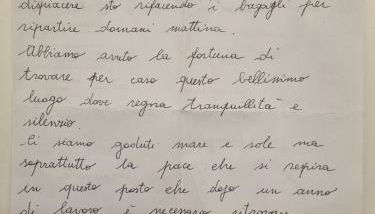 dispiacere sto rifacendo i bagagli per
ripartire domani mattina.
Abbiamo avuto la fortuna di
trovare per caso questo bellissimo
luogo dove regna tranquillità e
silenzio.
Ci siamo goduti mare e sole ma
soprattutto la pace che si respira
in questo posto che dopo un anno
di lavoro è necessario ritrovare